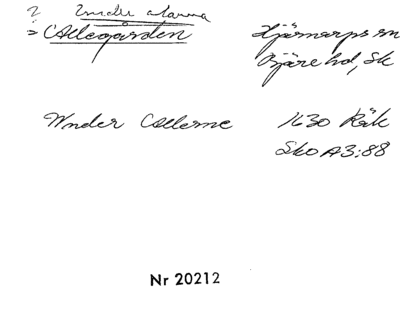 ? Under alarna
= Allegården Hjärnarps sn
Bjäre hd, Sk
Wnder Allerne 1630 Räk
Sko A3:88
Nr 20212